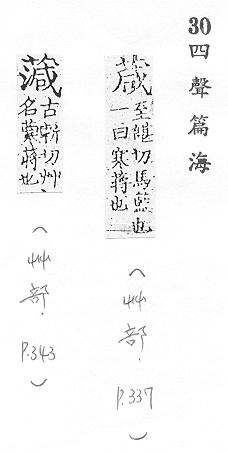 30四聲篇海
葴
至堪切馬藍也
一曰寒蔣也
(艸部. P.337)
古斬切艸
名 蔣也
(艸部. P.343)